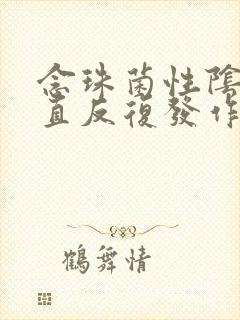 念珠菌性陰
直反復發作
鶴舞情